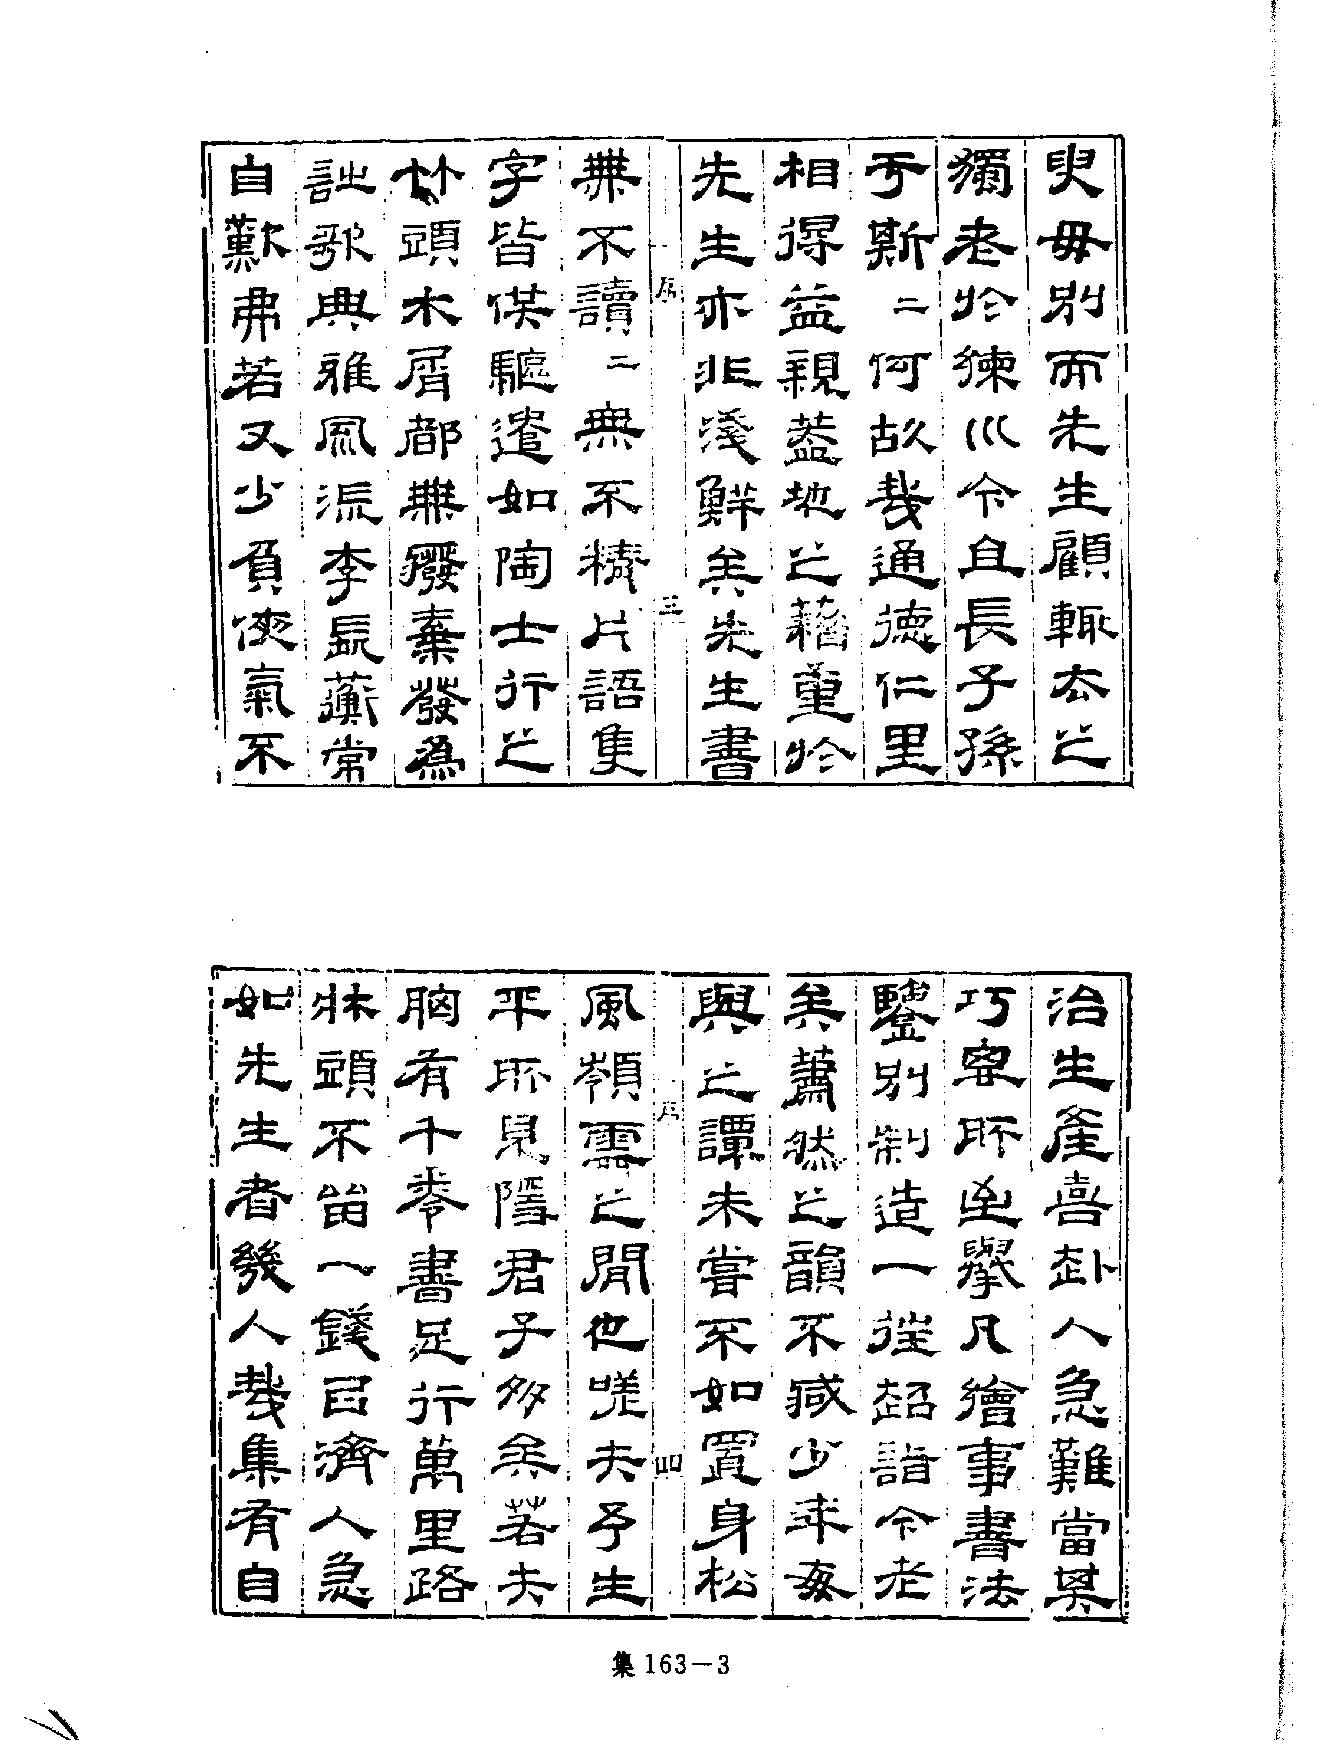 臾毋別而先生顧輙去之
獨老於練川今且長子孫
于斯二何故哉通德仁里
相得益親葢地之藉重於
先生亦非淺鮮矣先生書
序
三
無不讀二無不精片語隻
字皆供驅遣如陶士行之
竹頭木屑都無廢棄發為
詩歌典雅風流李辰蘅常
自歎弗若又少負俠氣不
治生產喜赴人急難當其
巧容所至舉凡繪事書法
鑒別制造一往超詣今老
矣蕭然之韻不減少年每
與之譚未嘗不如置身松
序
四
風嶺雲之閒也嗟夫予生
平所見隱君子多矣若夫
胸有千卷書足行萬里路
牀頭不留一錢㠯濟人急
如先生者幾人哉集有自
集 163－3